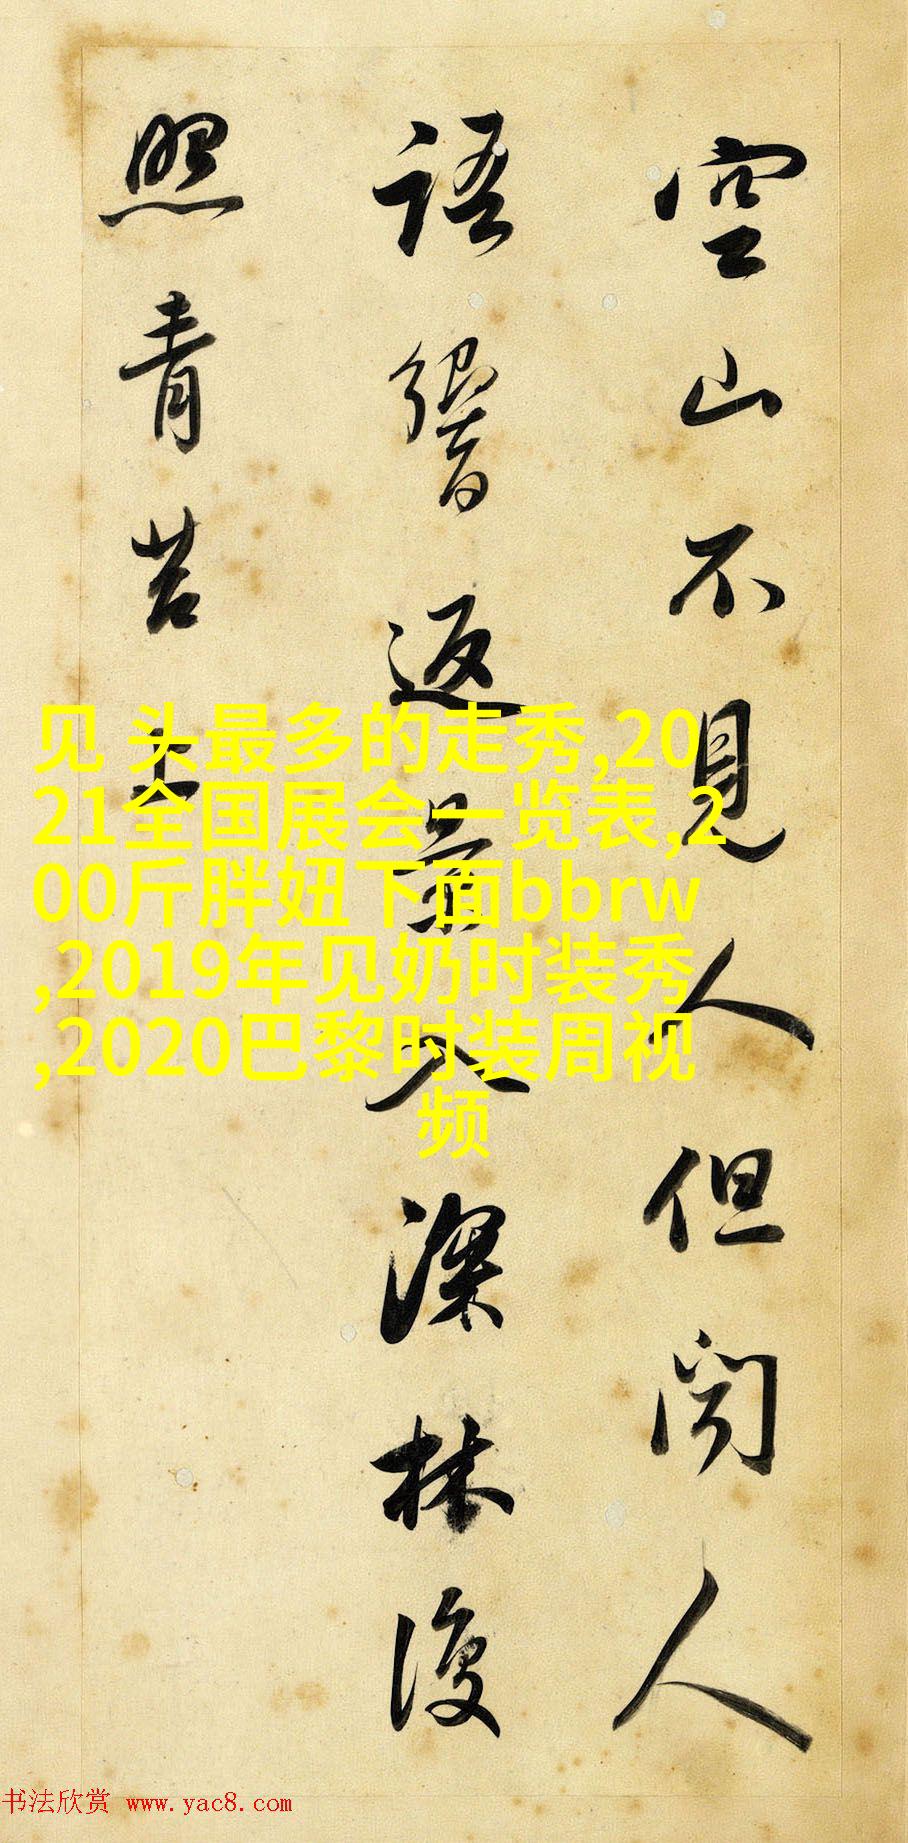 空山不見人但聞人
語響返景入深林復
照青苔上
见 头最多的走秀,20
21全国展会一览表,2
00斤胖妞下面bbrw
,2019年见奶时装秀
,2020巴黎时装周视
频
书法欣赏 www.yac8.com